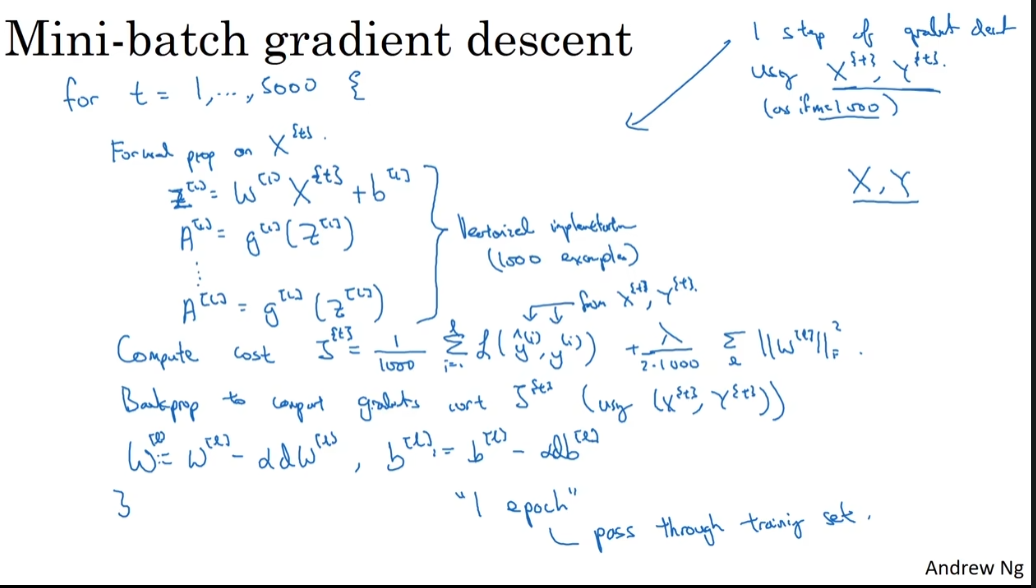 Mini-batch gradient descent
1 step of gradient descent
using X^{t}, Y^{t}.
(as if m=1000)
for t = 1,..., 5000 {
X, Y
Forward prop on X^{t}.
Z^[1] = W^[1] X^{t} + b^[1]
A^[1] = g^[1](Z^[1])
⋮
A^[L] = g^[L](Z^[L])
Vectorized implementation
(1000 examples)
from X^{t}, Y^{t}.
Compute cost J^{t} = 1/1000 Σ_{i=1}^{l} L(ŷ^(i), y^(i)) + λ/(2·1000) Σ_l ||W^[l]||_F^2.
Backprop to comput gradients wrt J^{t} (using (X^{t}, Y^{t}))
W^[l] := W^[l] - αdW^[l], b^[l] := b^[l] - αdb^[l]
}
"1 epoch"
pass through training set.
Andrew Ng